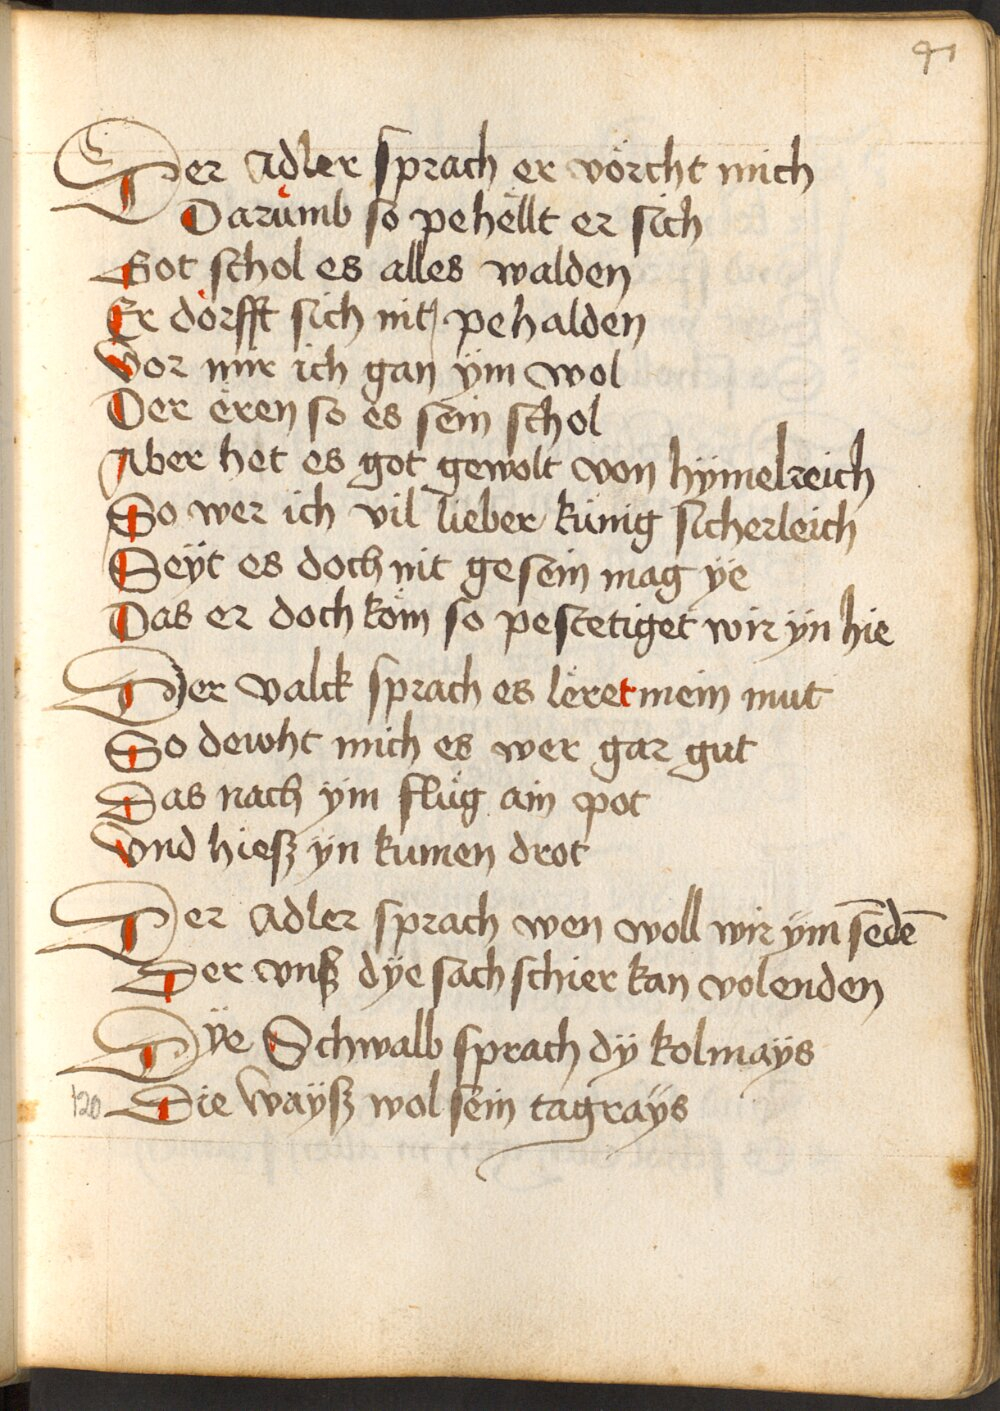 91
Der Adler sprach er vörcht mich
Darůmb so pehëllt er sich
Got schol es alles walden
Er dörfft sich nit pehalden
Vor mir ich gan ÿm wol
Der ëren so es sein schol
Aber het es got gewolt von hÿmelreich
So wer ich vil lieber künig sicherleich
Seÿt es doch nit gesein mag ÿe
Das er doch köm so pestetiget wir ÿn hie
Der valck sprach es lëret mein mut
So dewht mich es wer gar gut
Das nach ÿm flüg ain pot
Vnd hiesz ÿn kumen drot
Der Adler sprach wen woll wir ÿm sēdē
Der vnsz dÿe sach schier kan volenden
Dÿe Schwalb sprach dÿ kolmaÿs
120 Die waÿsz wol sein tagraÿs